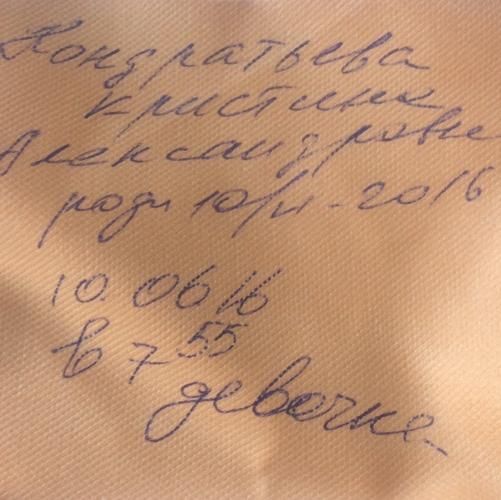 Кондратьева
Кристина
Александровна
роди 10/VI-2016
10.06 16
в 7 55
девочка